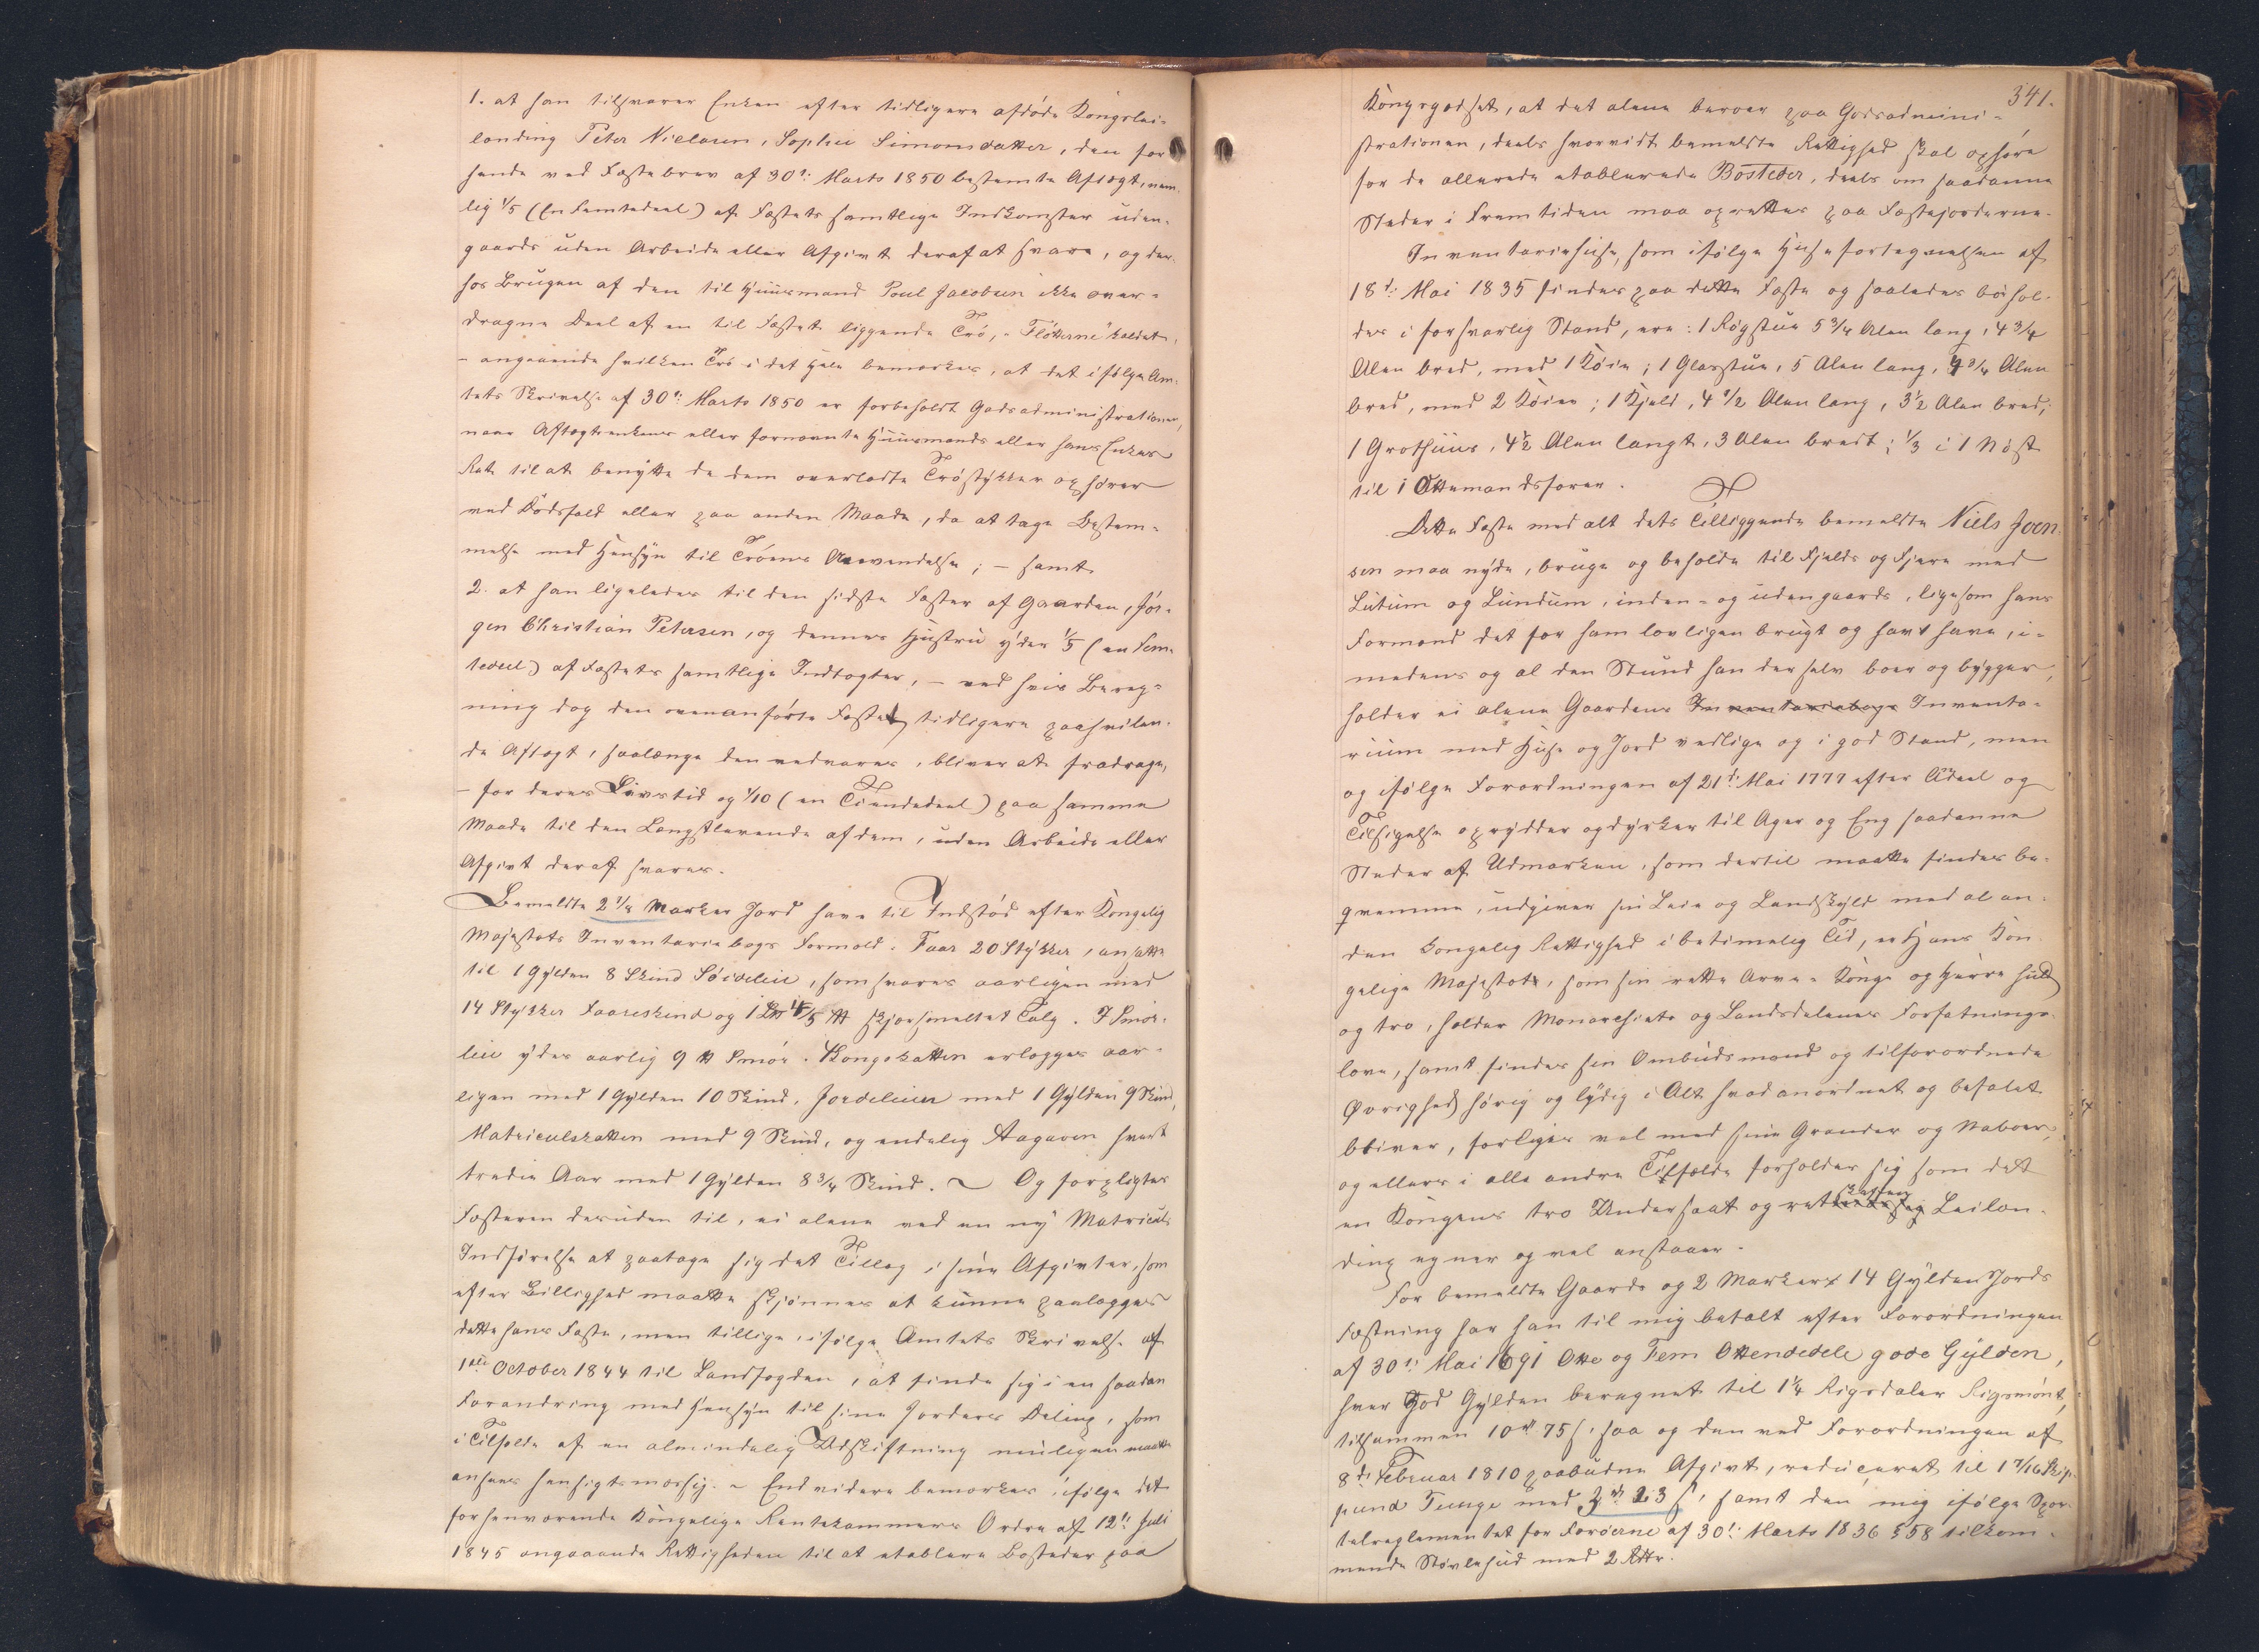 1. at han tilsvarer Enken efter tidligere afdøde Kongslei-
lending Peter Nielsen, Sophie Simonsdatter, den for
hende ved Fæstebrev af 30te Marts 1850 bestemte Aftægt, nem-
lig 1/5 (En Femtedeel) af Fæstets samtlige Indkomster uden-
gaards uden Arbeide eller Afgivt deraf at svare, og der-
hos Brugen af den til Huusmand Poul Jacobsen ikke over-
dragne Deel af en til Fæstet liggende Trø, "Fløtterne" kaldet,
- angaaende hvilken Trø i det Hele bemærkes, at det ifølge Am-
tets Skrivelse af 30te Marts 1850 er forbeholdt Godsadministrationen,
naar Aftægtsenkens eller fornævnte Huusmands eller hans Enkes
Ret til at benytte de dem overladte Trøstykker ophører
ved Dødsfald eller paa anden Maade, da at tage Bestem-
melse med Hensyn til Trøens Anvendelse; - samt
2. at han ligeledes til den sidste Fæster af Gaarden, Jör-
gen Christian Petersen, og dennes Hustru yder 1/5 (en Fem-
tedeel) af Fæstets samtlige Indtægter, - ved hvis Bereg-
ning dog den ovenanførte Fæstet tidligere paahvilen-
de Aftægt, saalænge den vedvarer, bliver at fradrage,
- for deres Livstid og 1/10 (en Tiendedeel) paa samme
Maade til den Længstlevende af dem, uden Arbeide eller
Afgivt deraf svares.
Bemeldte 2 7/8 Marker Jord have til Indstød efter Kongelig
Majestæts Inventariebogs Formeld. Faar 20 Stykker, ansatte
til 1 Gylden 8 Skind Söideleie, som svares aarligen med
14 Stykker Faareskind og 4/5 ℔ skjørsmeltet Talg. I Smör-
leie ydes aarlig 9 ℔ Smör. Kongsskatten erlægges aar-
ligen med 1 Gylden 10 Skind, Jordeleien med 1 Gylden 9 Skind,
Matriculskatten med 9 Skind, og endelig Aagaven hvert
tredie Aar med 1 Gylden 8 3/4 Skind. ~ Og forpligtes
Fæsteren desuden til, ei alene ved en ny Matriculs
Indførelse at paatage sig det Tillæg i sine Afgivter, som
efter Billighed maatte skjønnes at kunne paalægges
dette hans Fæste, men tillige, ifølge Amtets Skrivelse af
1ste October 1844 til Landfogden, at finde sig i en saadan
Forandring med Hensyn til sine Jorders Deling, som
i Tilfælde af en almindelig Udskiftning muligen maatte
ansees hensigtsmæssig. ~ Endvidere bemærkes, ifølge det
forhenværende Kongelige Rentekammers Ordre af 12te Juli
1845 angaaende Rettigheden til at etablere Bosteder paa
341.
Kongsgodset, at det alene beroer paa Godsadmini-
strationen, deels hvorvidt bemeldte Rettighed skal ophøre
for de allerede etablerede Bosteder, deels om saadanne
Steder i Fremtiden maa oprettes paa Fæstejorderne.
Inventariehuse, som ifølge Husefortegnelsen af
18de Mai 1835 findes paa dette Fæste og saaledes bør hol-
des i forsvarlig Stand, ere: 1 Røgstue 5 3/4 Alen lang, 4 3/4
Alen bred, med 1 Køie; 1 Glasstue, 5 Alen lang, 4 3/4 Alen
bred, med 2 Køier; 1 Hjeld, 4 1/2 Alen lang, 3 1/2 Alen bred;
1 Grothuus, 4 1/2 Alen langt, 3 Alen bredt; 1/3 i 1 Nøst
til 1 Ottemandsfarer.
Dette Fæste med alt dets Tilliggende bemeldte Niels Joen-
sen maa nyde, bruge og beholde til Fjelds og Fjære med
Lutum og Lundum, inden- og udengaards, ligesom hans
Formand det før ham lovligen brugt og havt have, i-
medens og al den Stund han der selv boer og bygger,
holder ei alene Gaardens Inventariebogs Inventa-
rium med Huse og Jord vedlige og i god Stand, men
og ifølge Forordningen af 21de Mai 1777 efter Udeel og
Tilsigelse oprydder og dyrker til Ager og Eng saadanne
Steder af Udmarken, som dertil maatte findes be-
qvemme, udgiver sin Leie og Landskyld med al an-
den kongelig Rettighed i betimelig Tid, er Hans Kon-
gelige Majestæt, som sin rette Arve-Konge og Herre huld
og tro, holder Monarchiets og Landsdelenes Forfatnings-
love, samt findes sin Ombudsmand og tilforordnede
Øvrighed hørig og lydig i Alt hvad anordnet og befalet
bliver, forliges vel med sine Grander og Naboer,
og ellers i alle andre Tilfælde forholder sig som det
en Kongens tro Undersaat og retskaffen Leilæn-
ding egner og vel anstaaer.
For bemeldte Gaards og 2 Marker 14 Gylden Jords
Fæstning har han til mig betalt efter Forordningen
af 30te Mai 1691 Otte og Fem Ottendedele gode Gylden,
hver God Gylden beregnet til 1 1/4 Rigsdaler Rigsmønt,
tilsammen 10 rd 75 s, saa og den ved Forordningen af
8de Februar 1810 paabudne Afgivt, reduceret til 1 7/16 Skip-
pund Tunge med 3 s, samt den mig ifølge Spor-
telreglementet for Færøerne af 30te Marts 1836 § 58 tilkom-
mende Støvlehud med 2 Rdlr.